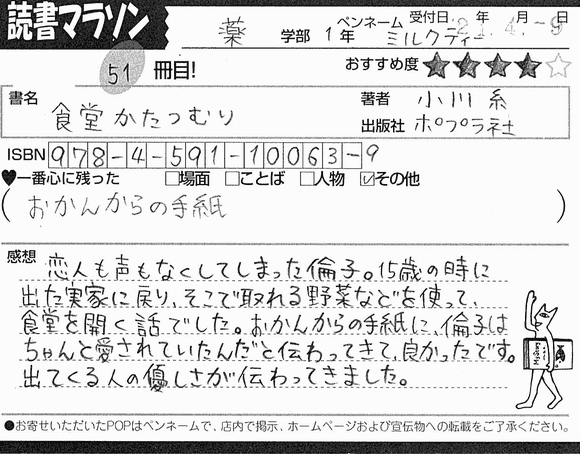 読書マラソン
薬 学部 1年 ペンネーム ミルクティー 受付日 21年 4月 -9日
51 冊目! おすすめ度 ★★★★☆
書名 食堂かたつむり 著者 小川 糸
出版社 ポプラ社
ISBN 978-4-591-10063-9
♥一番心に残った □場面 □ことば □人物 ☑その他
(おかんからの手紙)
感想 恋人も声もなくしてしまった倫子。15歳の時に
出た実家に戻り、そこで取れる野菜などを使って、
食堂を開く話でした。おかんからの手紙に、倫子は
ちゃんと愛されていたんだと伝わってきて、良かったです。
出てくる人の優しさが伝わってきました。
●お寄せいただいたPOPはペンネームで、店内で掲示、ホームページおよび宣伝物への転載をご了承ください。